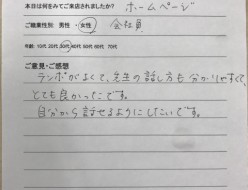 本日は何をみてご来店されましたか？ ホームページ
ご職業性別： 男性 ・ 女性 会社員
年齢： 10代 20代 30代 40代 50代 60代 70代
ご意見・ご感想
テンポがよくて、先生の話し方も分かりやすくて、
とても良かったです。
自分から話せるようにしたいです。